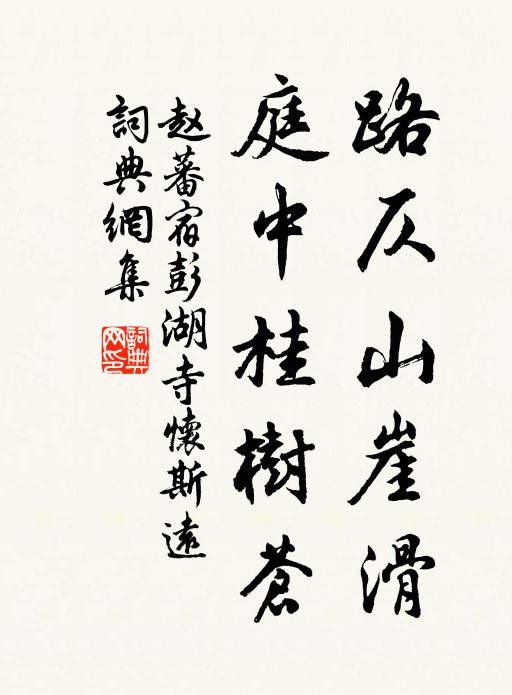 路仄山崖滑
庭中桂樹蒼
赵蕃宿彭湖寺懷斯遠
詞典網集
詞典网印